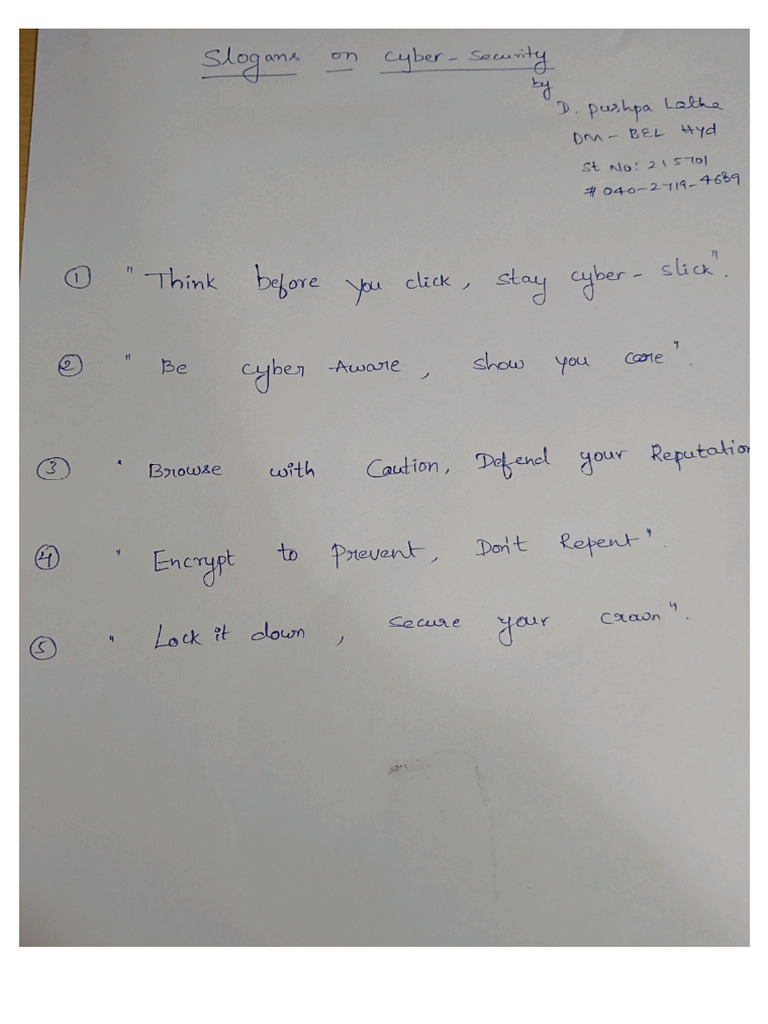 Slogans on Cyber-Security
by
D. Pushpa Latha
DM - BEL Hyd
St No: 215701
# 040-2719-4689
① "Think before you click, stay cyber-slick".
② "Be cyber Aware, show you care".
③ " Browse with Caution, Defend your Reputation
④ "Encrypt to Prevent, Don't Repent".
⑤ "Lock it down, secure your crown".